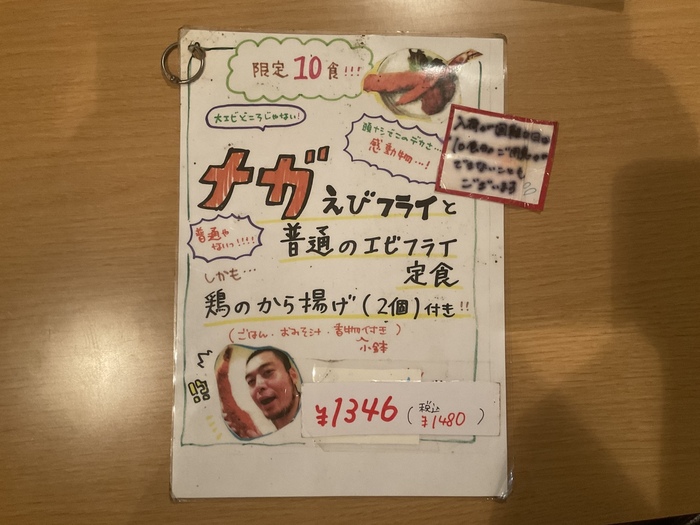 限定10食!!!
大エビどころじゃない!
頭ナシでこのデカさ…
感動物…!
メガえびフライと
普通の
ないっ!!!!
普通のエビフライ
定食
しかも…
鶏のから揚げ(2個)付き!!
(ごはん・おみそ汁・香物付き)
小鉢
¥1346(税込¥1480)
入荷が困難な日は
10食分ご用意が
できないことも
ございます